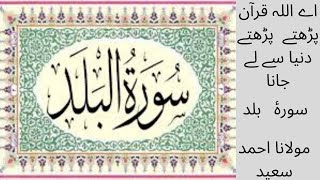 اے اللہ قرآن
پڑھتے پڑھتے
دنیا سے لے
جانا
سورۂ بلد
مولانا احمد
سعید
سُورَةُ البَلَدِ